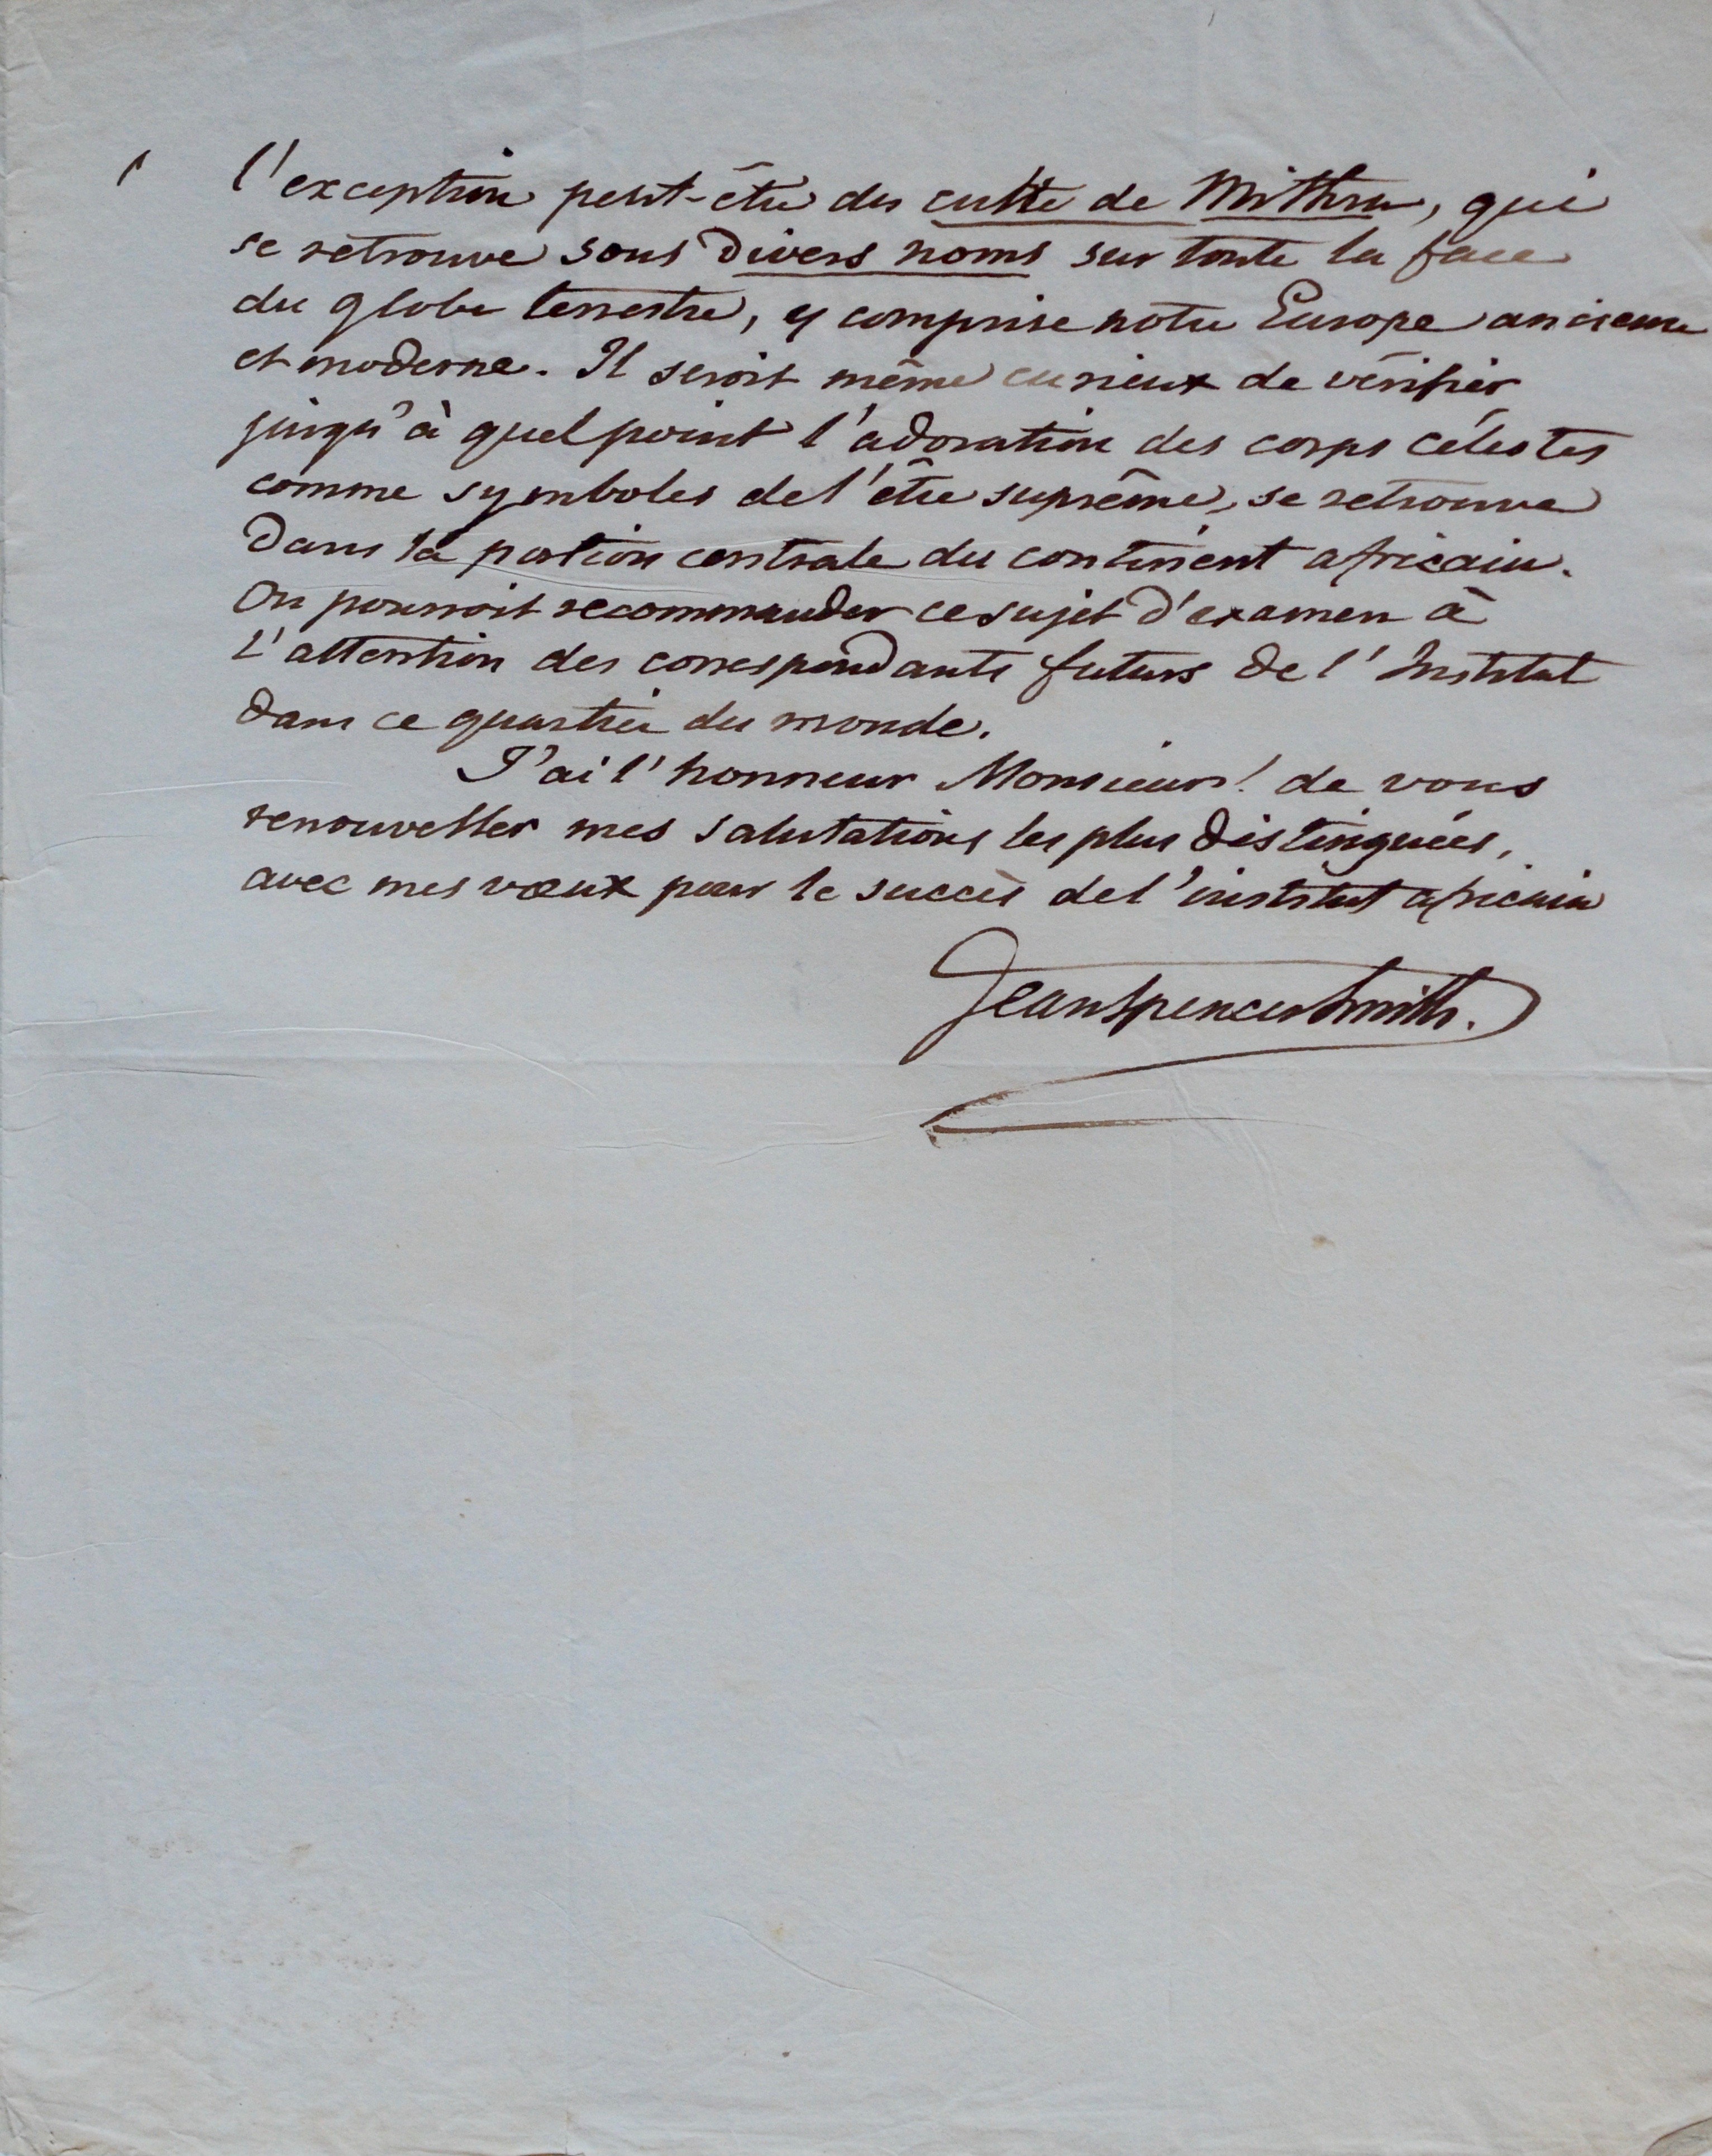 l'exception peut-être du culte de Mithra, qui
se retrouve sous divers noms sur toute la face
du globe terrestre, y comprise notre Europe ancienne
et moderne. Il seroit même curieux de vérifier
jusqu'à quel point l'adoration des corps célestes
comme symboles de l'être suprême, se retrouve
dans la portion centrale du continent africain.
On pourroit recommander ce sujet d'examen à
l'attention des correspondants futurs de l'Institut
dans ce quartier du monde.
J'ai l'honneur Monsieur! de vous
renouveller mes salutations les plus distinguées,
avec mes vœux pour le succès de l'institut africain
Jean Spencer Smith.